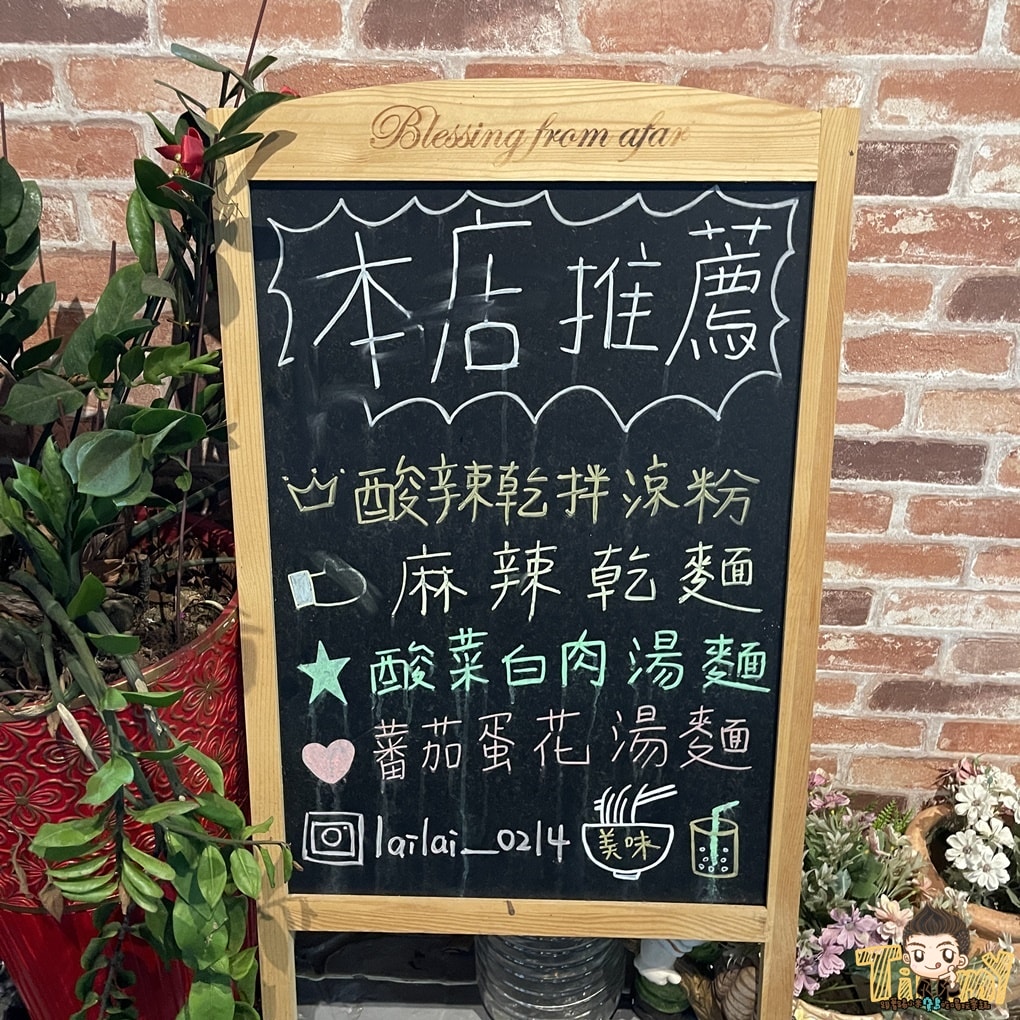 Blessing from afar
本店推薦
酸辣乾拌涼粉
麻辣乾麵
酸菜白肉湯麵
蕃茄蛋花湯麵
lailai__0214
美味